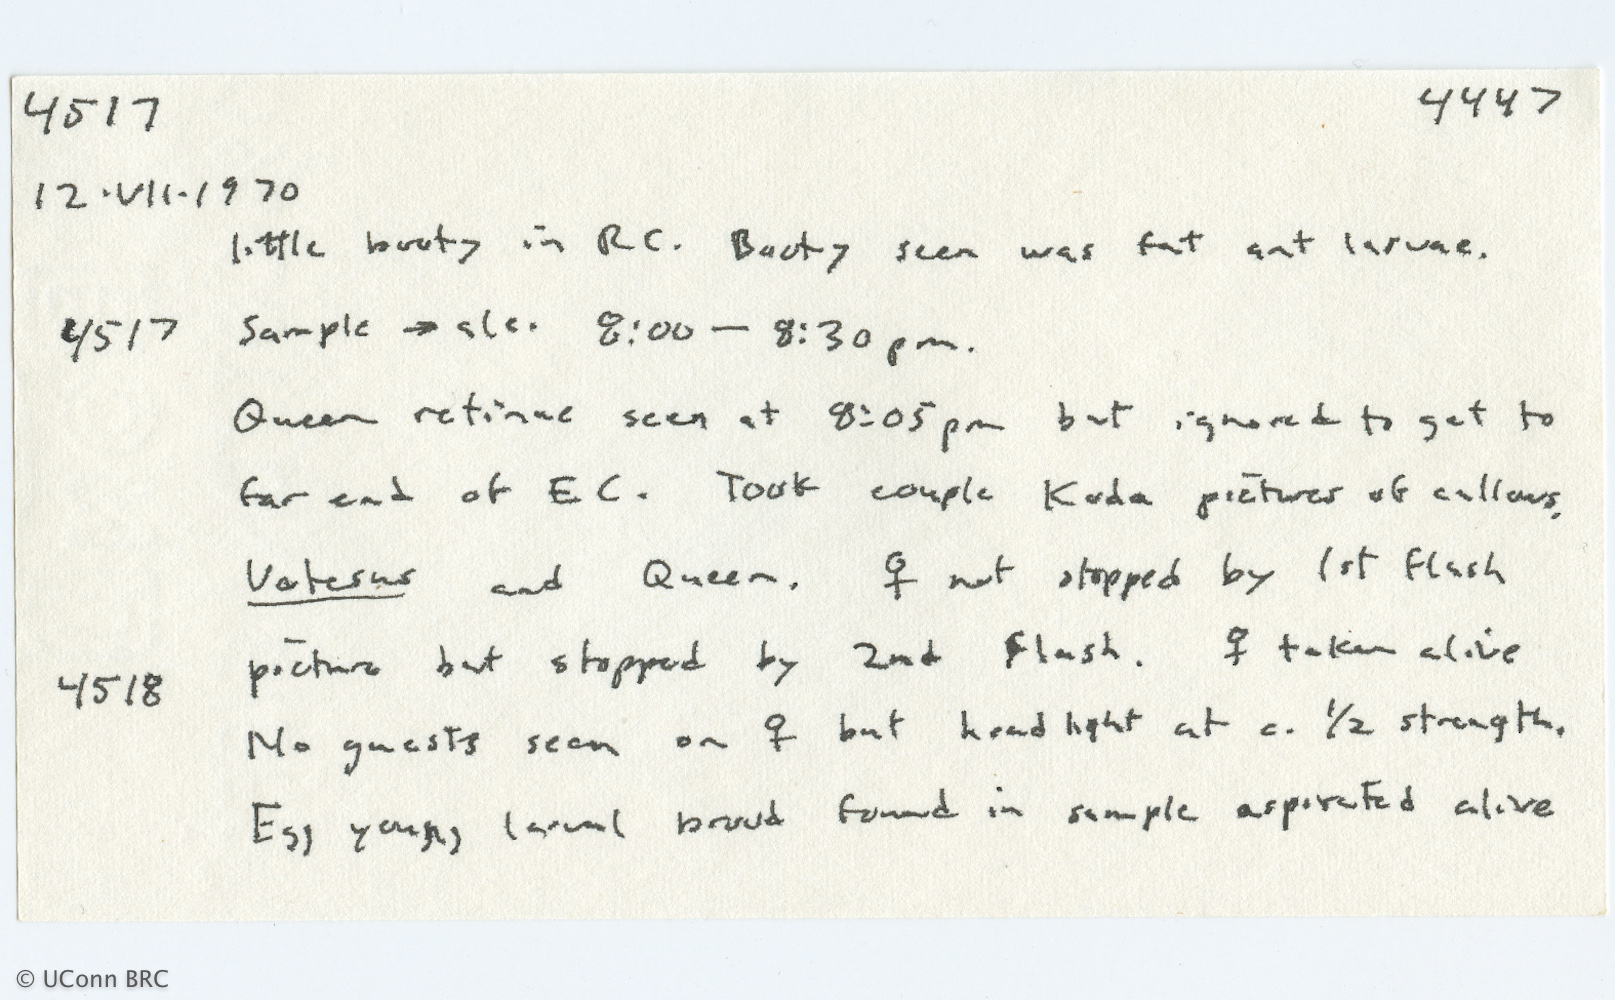 4517 4447
12.VII.1970
little booty in RC. Booty seen was fat ant larvae.
4517 Sample → alc. 8:00 — 8:30 pm.
Queen retinue seen at 8:05 pm but ignored to get to
far end of EC. Took couple Koda pictures of callows,
Vatesus and Queen. ♀ not stopped by 1st flash
picture but stopped by 2nd flash. ♀ taken alive
4518
No guests seen on ♀ but headlight at c. 1/2 strength.
Egg, young larval brood found in sample aspirated alive
© UConn BRC